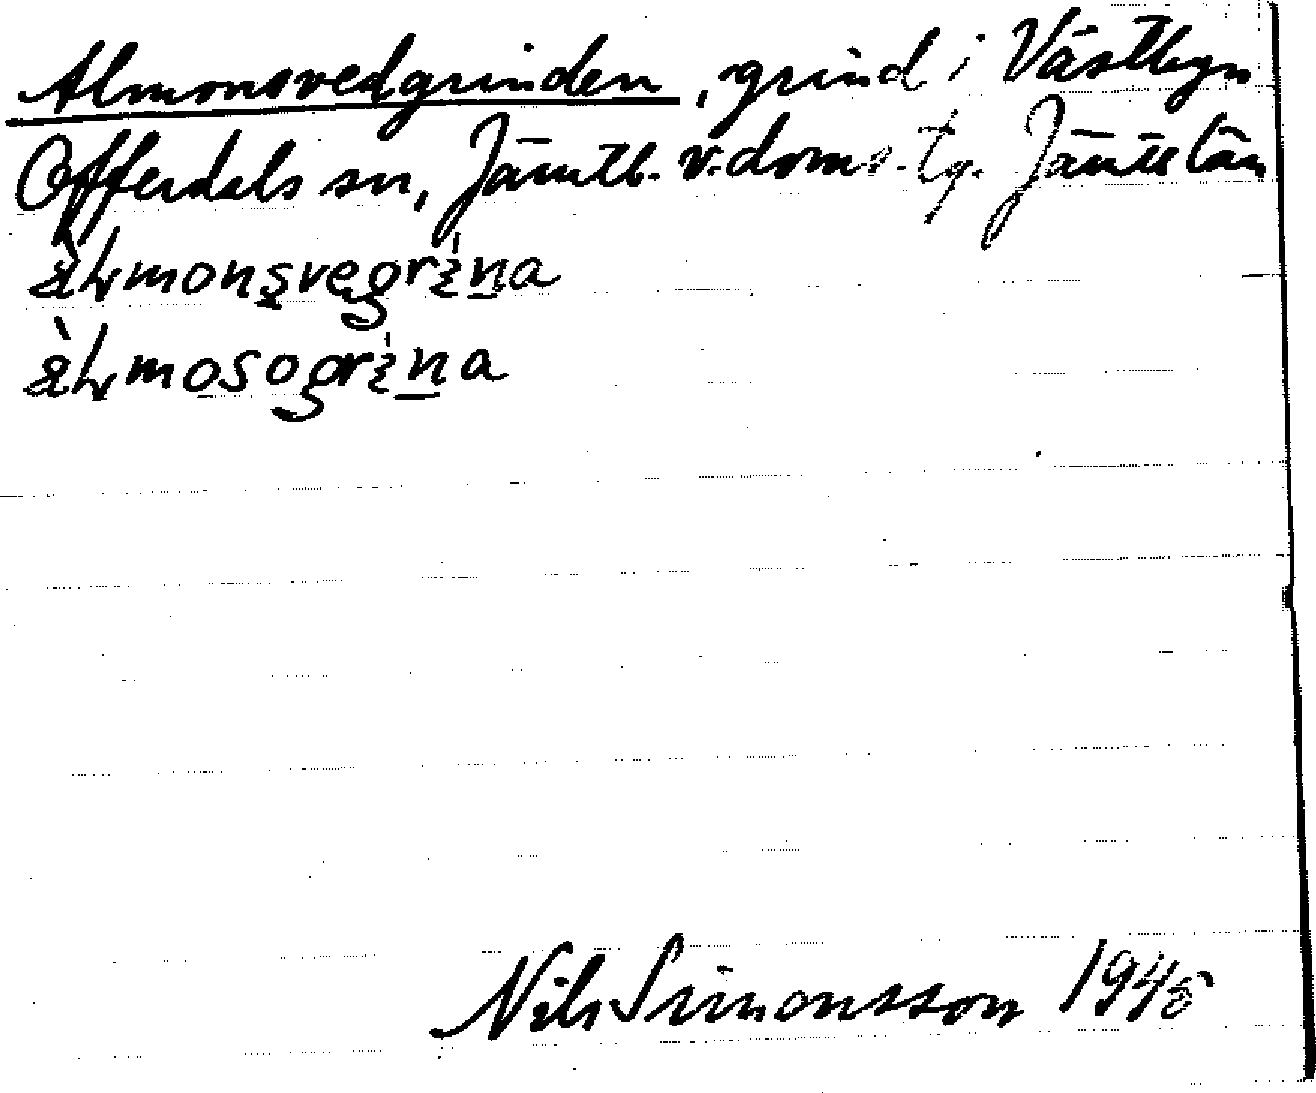 Almonsvedgrinden, grind i Västbyn
Offerdals sn, Jämtl. v. doms. tg. Jämtl län
àlmonsvegrina
àlmosogrina
Nils Simonsson 1945